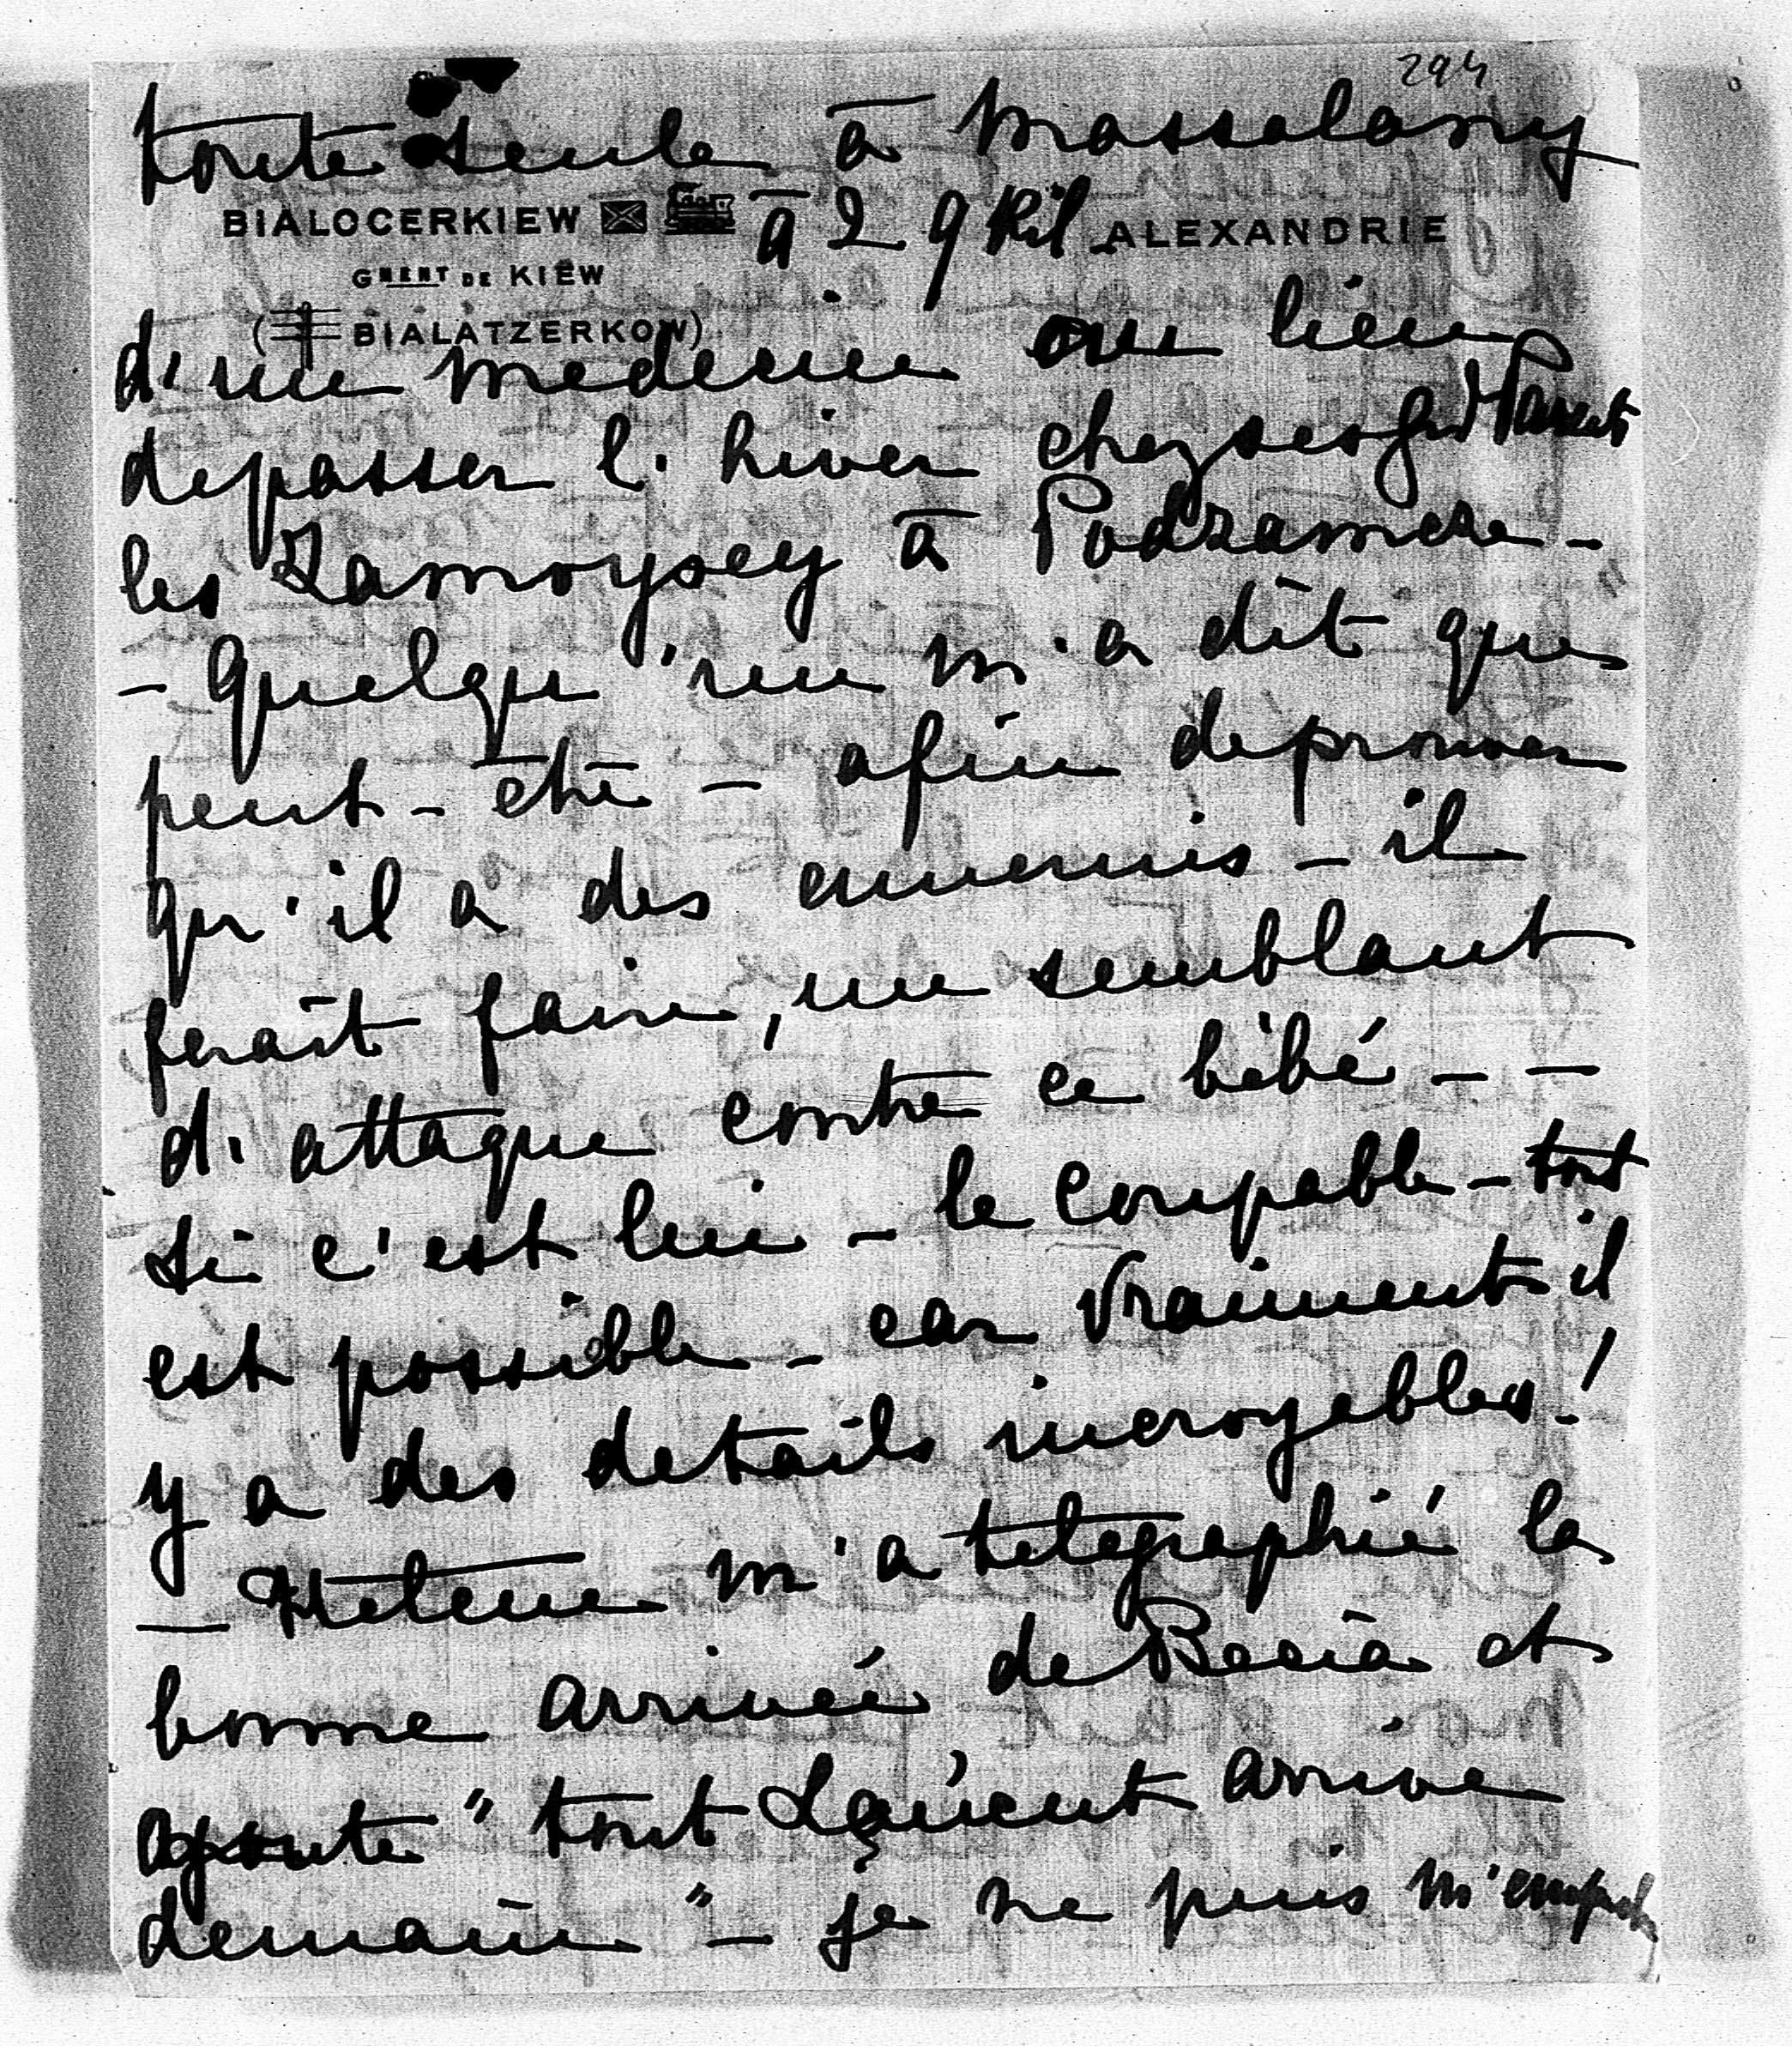 294
toute seule à Massalany
BIALOCERKIEW à 29 Kil ALEXANDRIE
GMENT DE KIEW
(BIALATZERKOW)
d'un medecin au lieu
de passer l'hiver chez ses Grd Parents
les Zamoysey à Podzamcze -
- Quelqu'un m'a dit que
peut-être - afin de prouver
qu'il a des ennemis - il
ferait faire, un semblant
d'attaque contre ce bébé - -
Si c'est lui - le coupable - tout
est possible - car vraiment il
y a des details incroyables!
- Helene m'a telegraphié la
bonne arrivée de et
ajoute " tout Laurent arrive
demain " - je ne puis